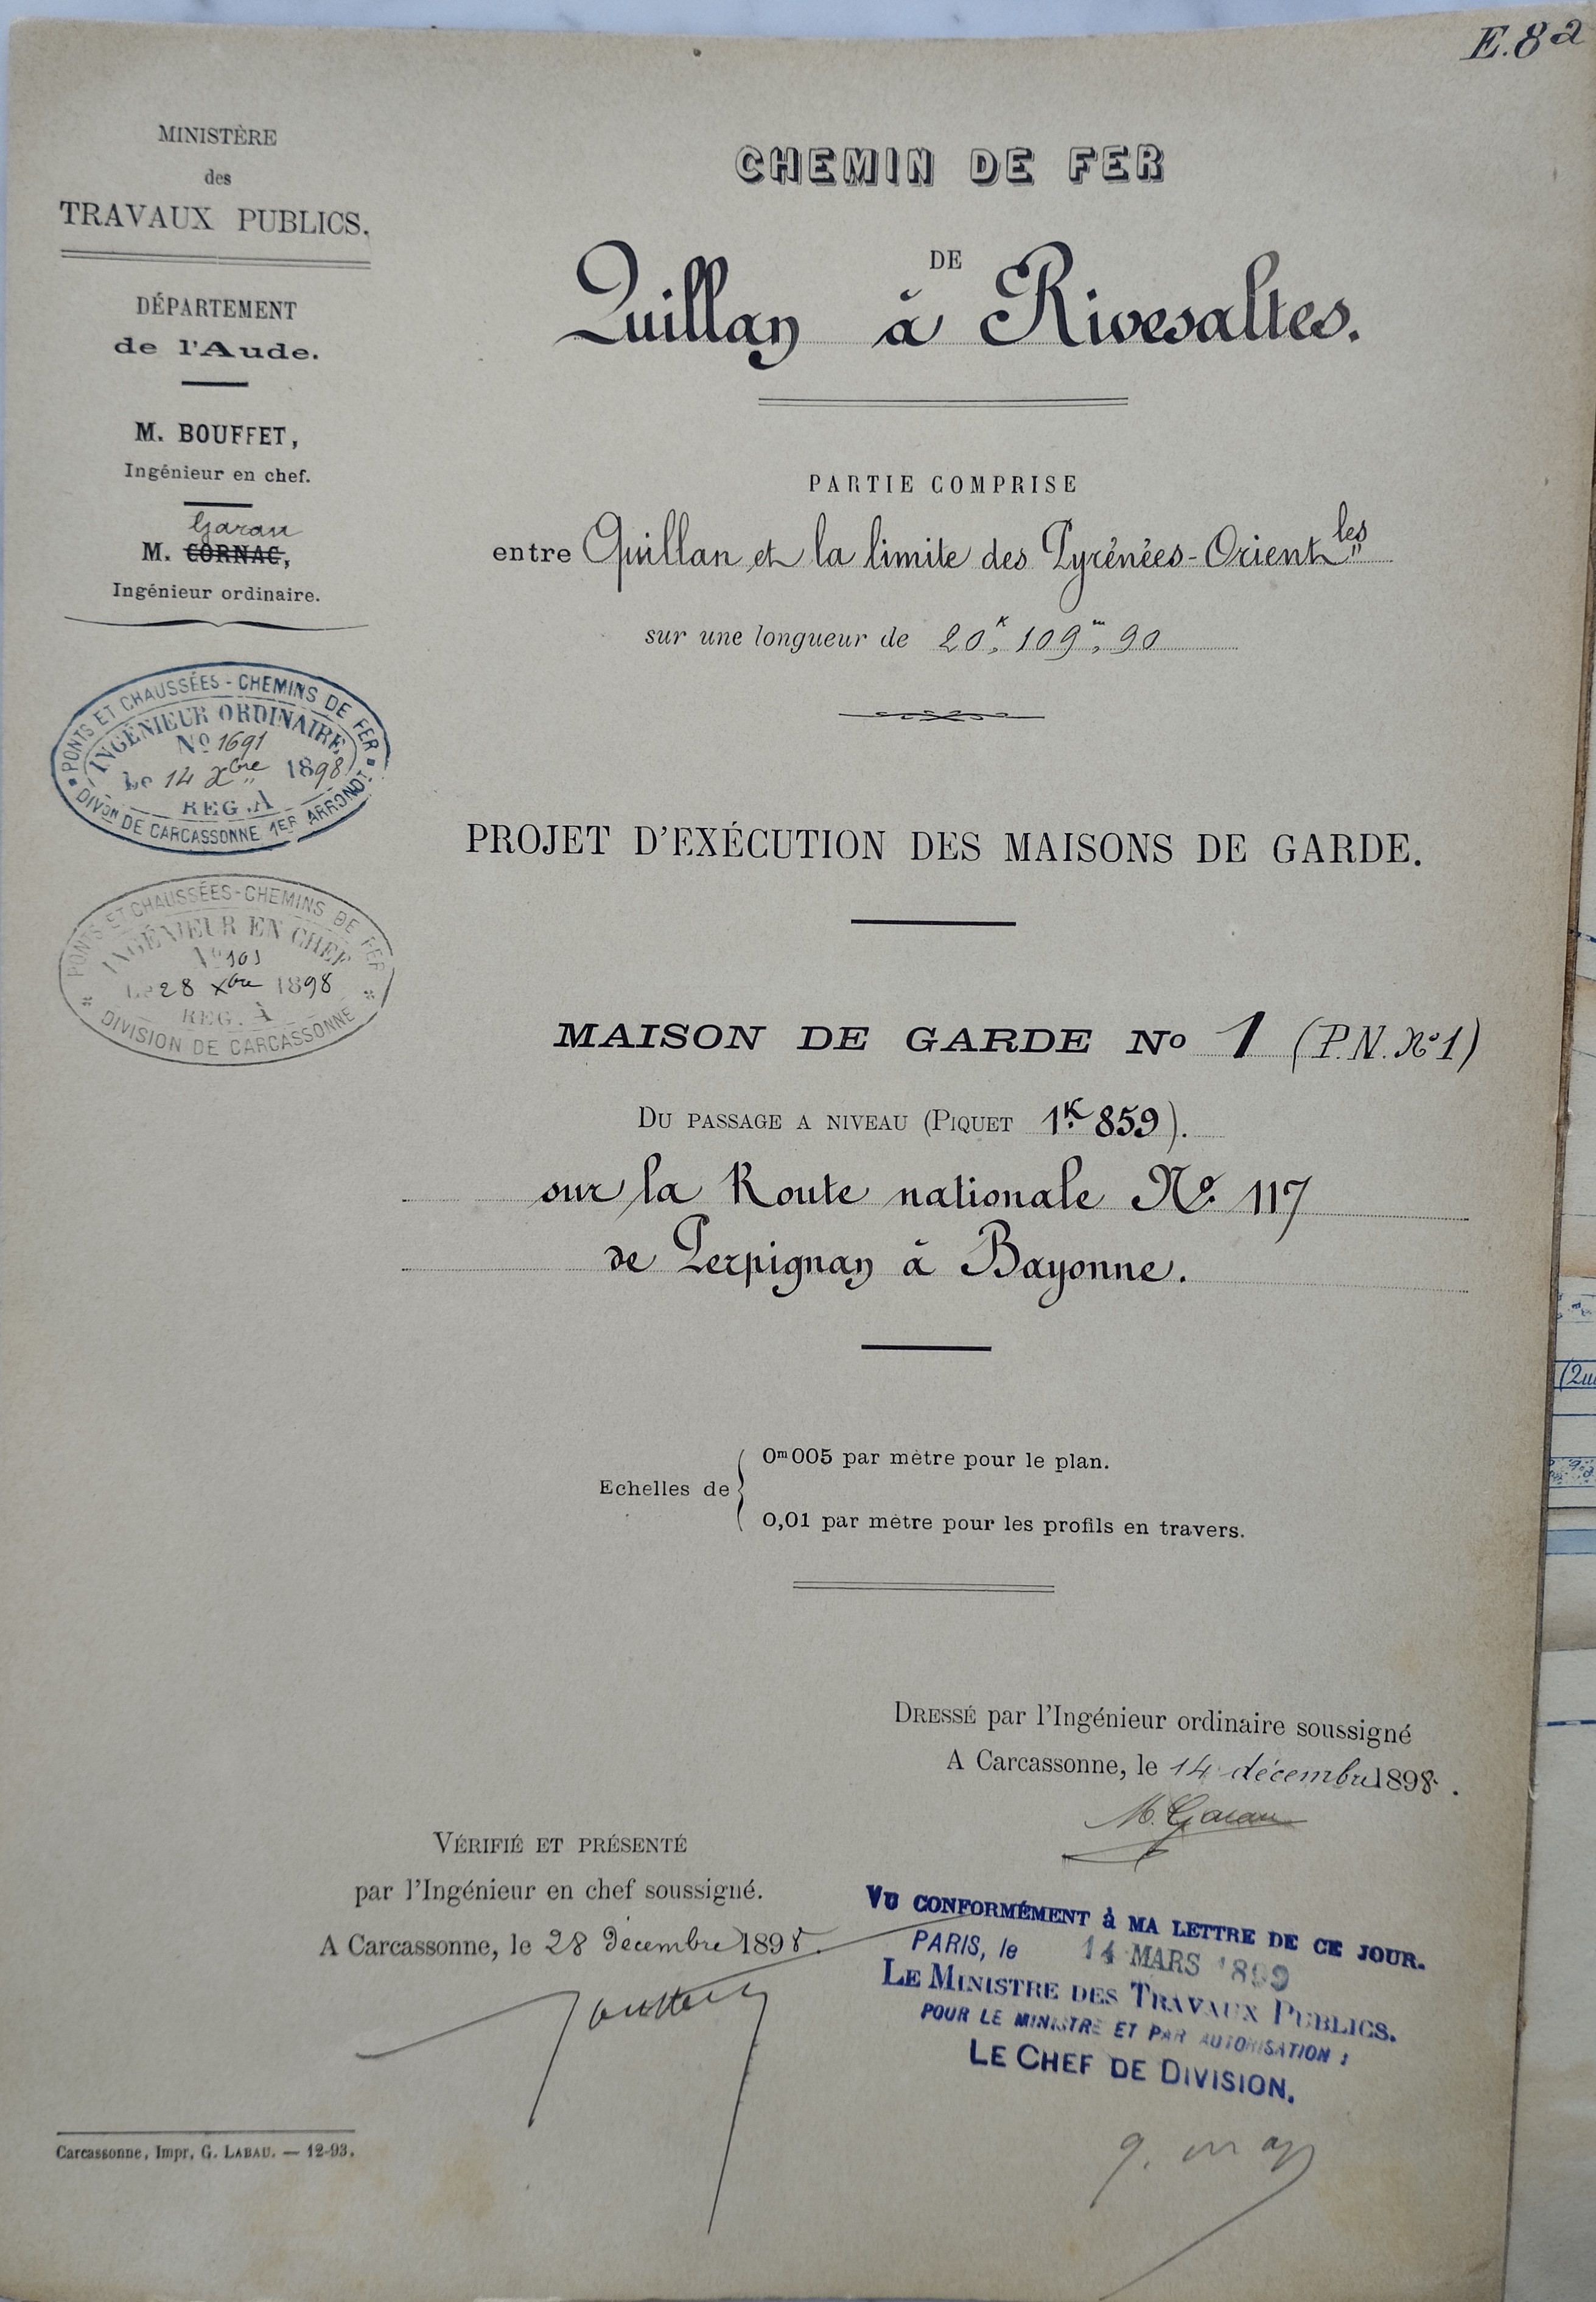 E.8ª
MINISTÈRE
des
TRAVAUX PUBLICS.
DÉPARTEMENT
de l'Aude.
M. BOUFFET,
Ingénieur en chef.
Garau
M. CORNAC,
Ingénieur ordinaire.
PONTS ET CHAUSSÉES - CHEMINS DE FER
INGÉNIEUR ORDINAIRE
Nº 1691
Le 14 Xbre 1898
REG. A
DIVon DE CARCASSONNE 1ER ARRONDT
PONTS ET CHAUSSÉES - CHEMINS DE FER
INGÉNIEUR EN CHEF
Nº 101
Le 28 Xbre 1898
REG. À
DIVISION DE CARCASSONNE
CHEMIN DE FER
DE
Quillan à Rivesaltes.
PARTIE COMPRISE
entre Quillan et la limite des Pyrénées-Orientles
sur une longueur de 20K, 109m, 90
PROJET D'EXÉCUTION DES MAISONS DE GARDE.
MAISON DE GARDE No 1 (P.N. Nº1)
DU PASSAGE A NIVEAU (PIQUET 1K.859).
sur la Route nationale Nº 117
de Perpignan à Bayonne.
Echelles de
0m005 par mètre pour le plan.
0,01 par mètre pour les profils en travers.
DRESSÉ par l'Ingénieur ordinaire soussigné
A Carcassonne, le 14 décembre 1898.
M. Garau
VÉRIFIÉ ET PRÉSENTÉ
par l'Ingénieur en chef soussigné.
A Carcassonne, le 28 Décembre 1898.
VU CONFORMÉMENT à MA LETTRE DE CE JOUR.
PARIS, le 14 MARS 1899
LE MINISTRE DES TRAVAUX PUBLICS.
POUR LE MINISTRE ET PAR AUTORISATION :
LE CHEF DE DIVISION.
Carcassonne, Impr. G. LABAU. — 12-93.